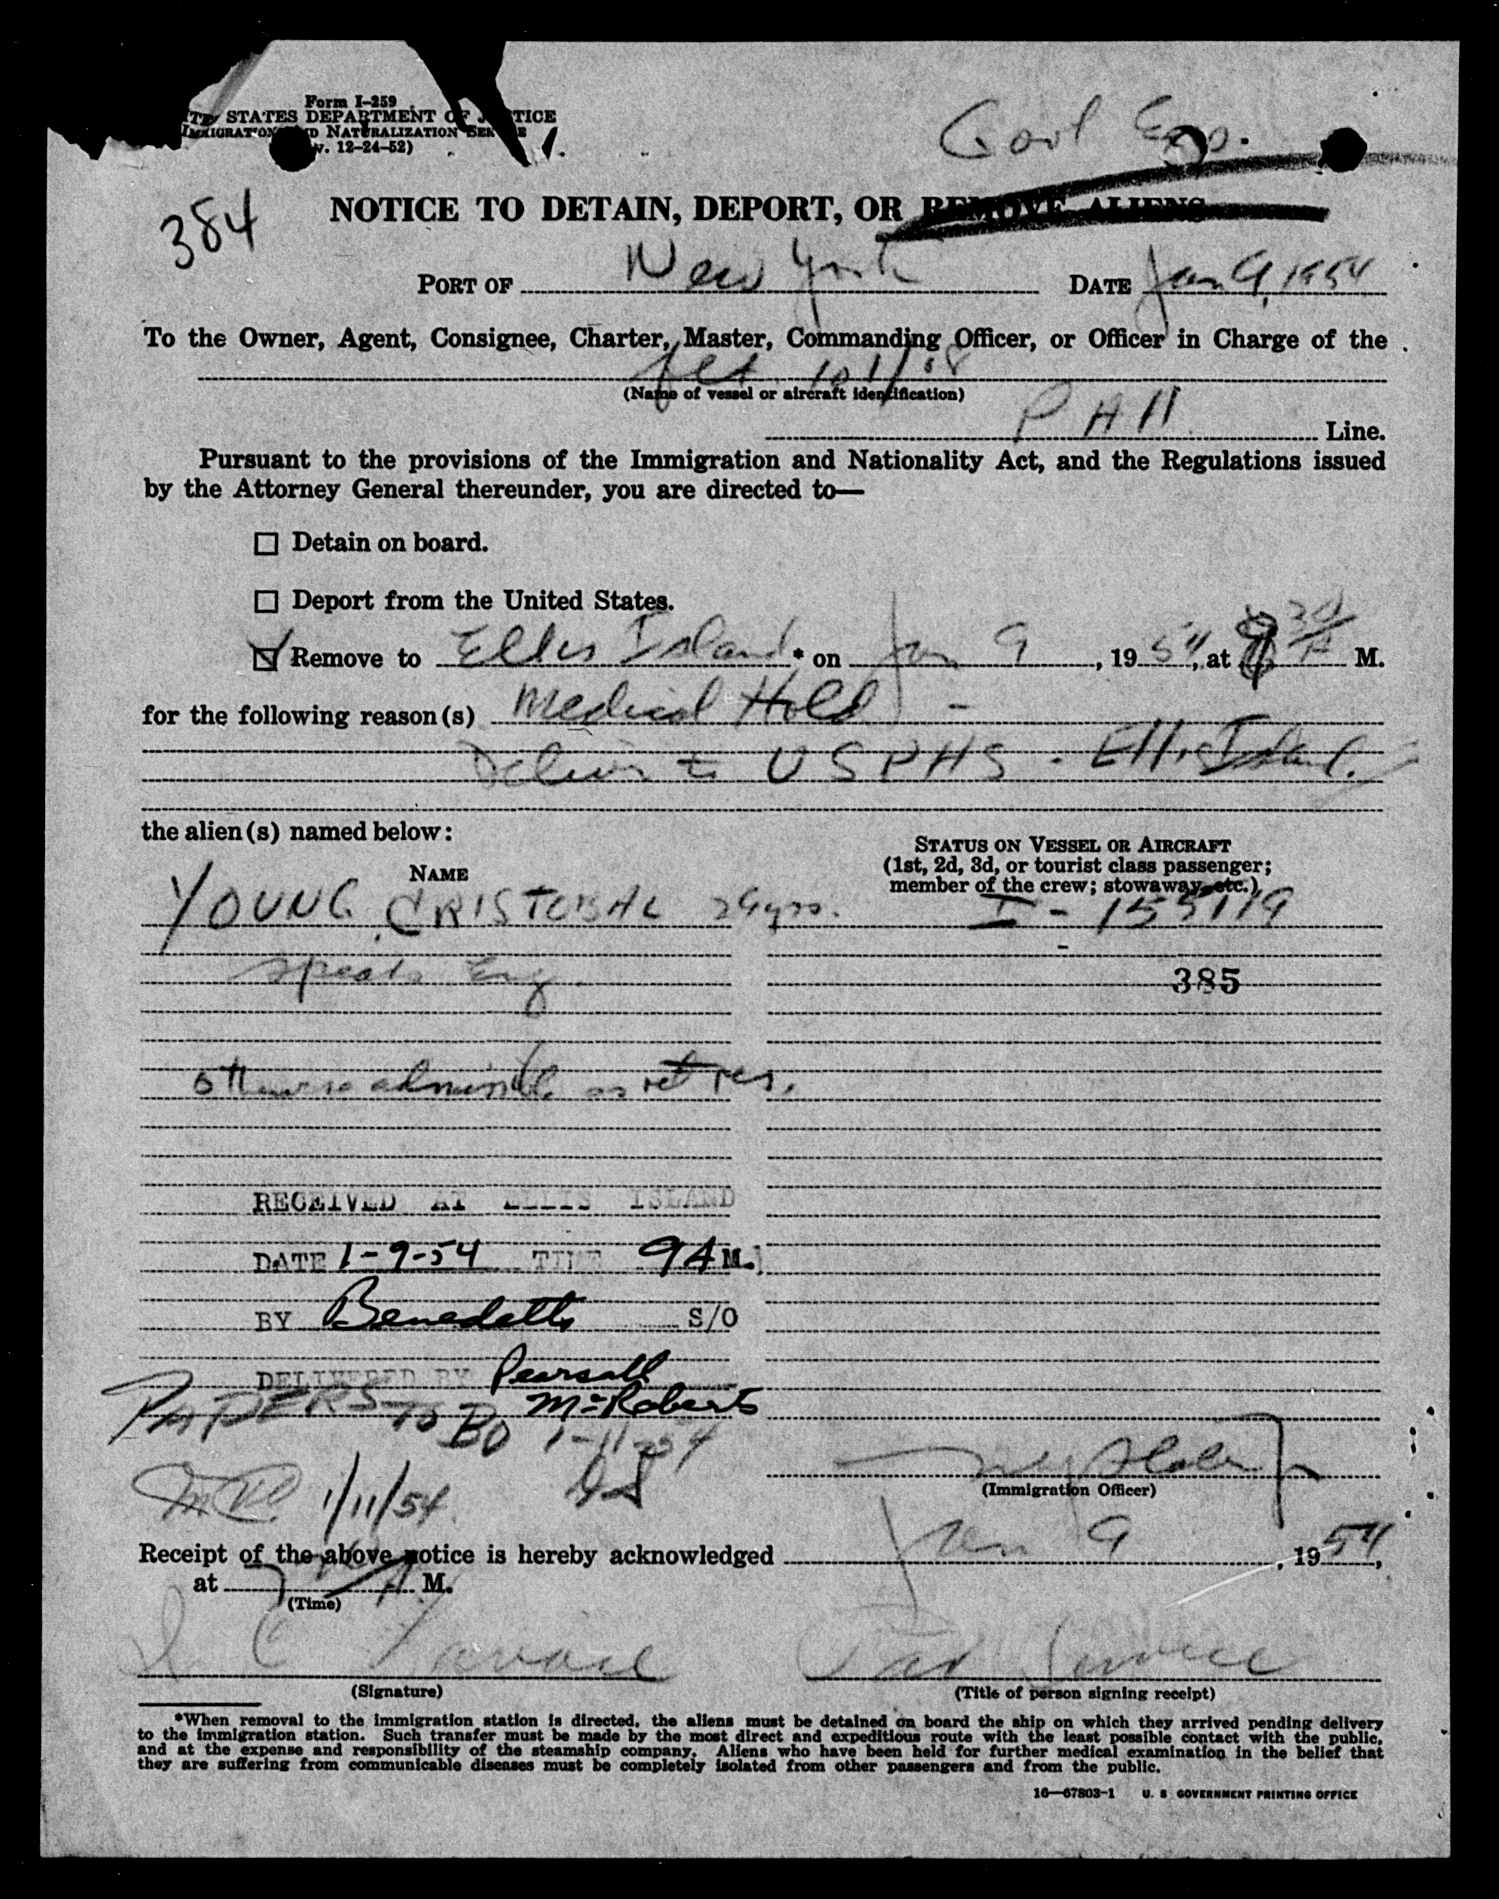 Form I-259
STATES DEPARTMENT OF
NATURALIZATION
12-24-52)
Govt Exp.
384
NOTICE TO DETAIN, DEPORT, OR REMOVE ALIENS
PORT OF New York DATE Jan 9, 1954
To the Owner, Agent, Consignee, Charter, Master, Commanding Officer, or Officer in Charge of the
101/
(Name of vessel or aircraft identification)
Line.
Pursuant to the provisions of the Immigration and Nationality Act, and the Regulations issued
by the Attorney General thereunder, you are directed to—
Detain on board.
Deport from the United States.
Remove to Ellis Island * on Jan 9, 1954, at M.
for the following reason(s) Medical Hold -
Deliver to USPHS - Ellis Island.
the alien(s) named below:
NAME
STATUS ON VESSEL OR AIRCRAFT
(1st, 2d, 3d, or tourist class passenger;
member of the crew; stowaway, etc.)
YOUNG, CRISTOBAL 29 yrs. I-155119
speaks Eng.
385
otherwise admissible as ret res.
RECEIVED AT ELLIS ISLAND
DATE 1-9-54 TIME 9 A M.
BY Benedetto S/O
DELIVERED BY Pearsall
McRoberts
PAPERS TO BO 1-11-54
1/11/54
(Immigration Officer)
Receipt of the above notice is hereby acknowledged Jan 9, 1954,
at M.
(Time)
(Signature)
(Title of person signing receipt)
*When removal to the immigration station is directed, the aliens must be detained on board the ship on which they arrived pending delivery
to the immigration station. Such transfer must be made by the most direct and expeditious route with the least possible contact with the public,
and at the expense and responsibility of the steamship company. Aliens who have been held for further medical examination in the belief that
they are suffering from communicable diseases must be completely isolated from other passengers and from the public.
16—67803-1 U. S GOVERNMENT PRINTING OFFICE